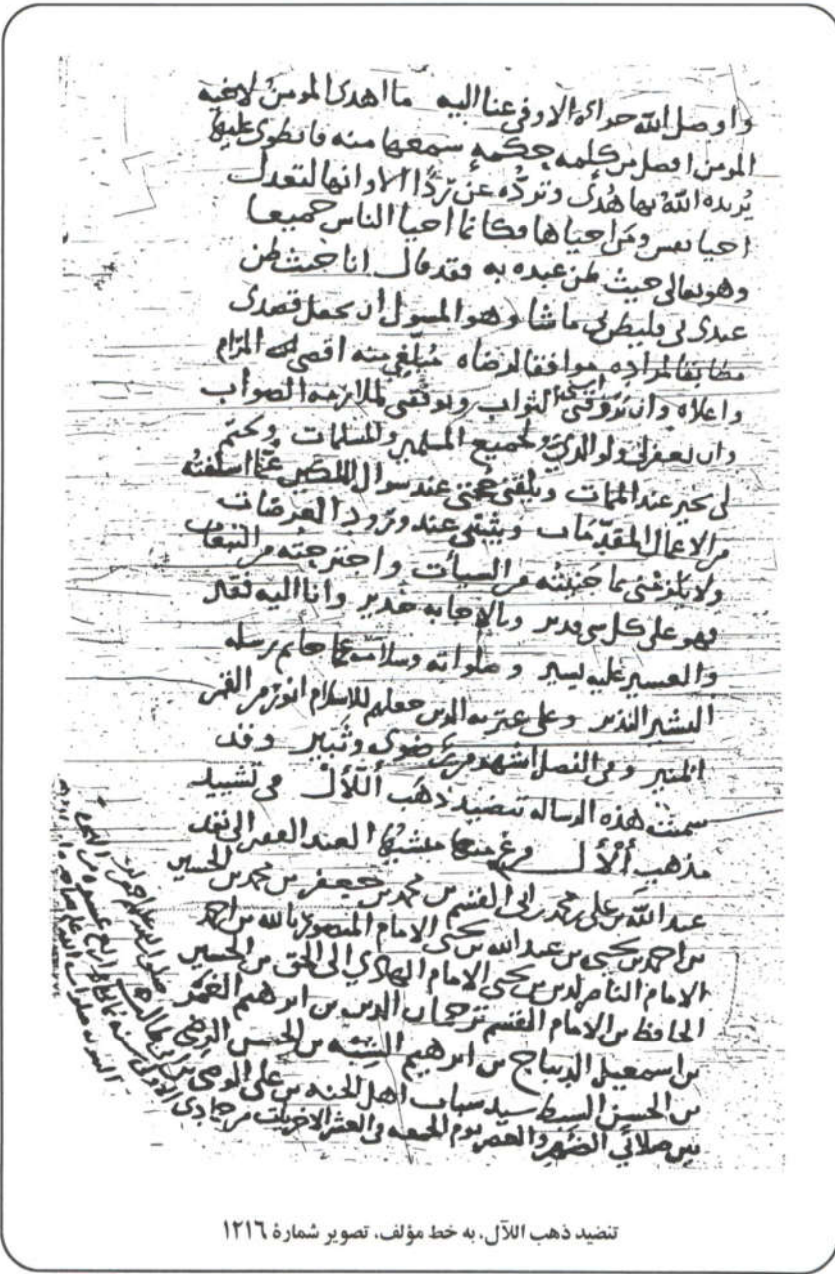 واوصل الله جزاه الاوفى عنا اليه ما اهدى المومن لاخيه
المومن افضل من كلمه حكمه سمعها منه فانطوى عليها
يزيده الله بها هدى وتردّه عن ردًا الا وانها لتعدل
احيا نفس ومن احياها فكانما احيا الناس جميعا
وهو تعالى حيث ظن عبده به فقد قال انا حيث ظن
عبدى بى فليظن بى ما شا وهو المسول ان يجعل قصدى
مطابقا لمراده موافقا لرضاه مُبلّغى منه اقصى المرام
واعلاه وان الثواب ويوفقنى لملازمه الصواب
وان يغفر لى ولوالدىّ ولجميع المسلمين والمسلمات ويختم
لى بخير عند الممات ويلقنى حجتى عند سوال الملكين عمّا اسلفته
من الاعمال المقدّمات ويثبتنى عند ورود العرضات
ولا ما جنيته من السيأت واجترحته من التبعات
فهو على كل شى قدير وبالاجابه جدير وانا اليه فقير
والعسير عليه يسير وصلواته وسلامه على خاتم رسله
البشير النذير وعلى عترته الذين جعلهم للاسلام انور من القمر
المنير وفى الفضل اشهر من رضوى وثبير وقد
سميت هذه الرساله تنضيد ذهب اللآل فى تشييد
مذهب الأل فرغ منها منشيها العبد الفقير الى
عبد الله بن على بن محمد بن ابى القسم بن محمد بن جعفر بن محمد بن الحسين
بن احمد بن يحيى بن عبد الله بن يحيى الامام المنصور بالله بن احمد
الامام الناصر لدين بن يحيى الامام الهادي الى الحق بن الحسين
الحافظ بن الامام القسم ترجمان الدين بن ابرهيم الغمر
بن اسمعيل الديباج بن ابرهيم الشبه بن الحسن الرضى
بن الحسن السبط سيد شباب اهل الجنه بن على الوصى بن ابى طالب
بين صلاتي الظهر والعصر يوم الجمعه فى العشر الاخر من جمادى الاولى سنه
تنضيد ذهب اللآل، به خط مؤلف، تصویر شمارهٔ ۱۲۱۶